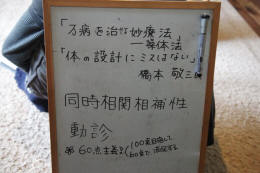 「万病を治す妙療法」
―操体法
「体の設計にミスはない」
橋本 敬三
同時相関相補性
動診
60点主義
100点目指して
60点で満足する